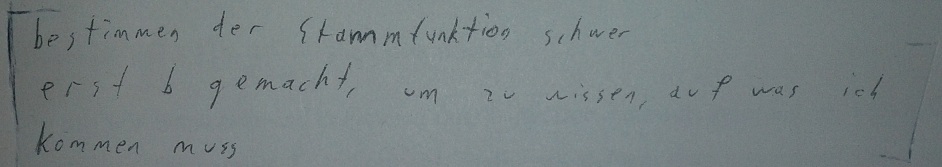 bestimmen der Stammfunktion schwer
erst b gemacht, um zu wissen, auf was ich
kommen muss